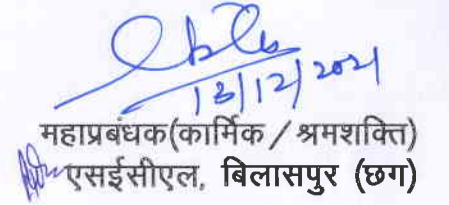 13/12/2021
महाप्रबंधक(कार्मिक / श्रमशक्ति)
एसईसीएल, बिलासपुर (छग)